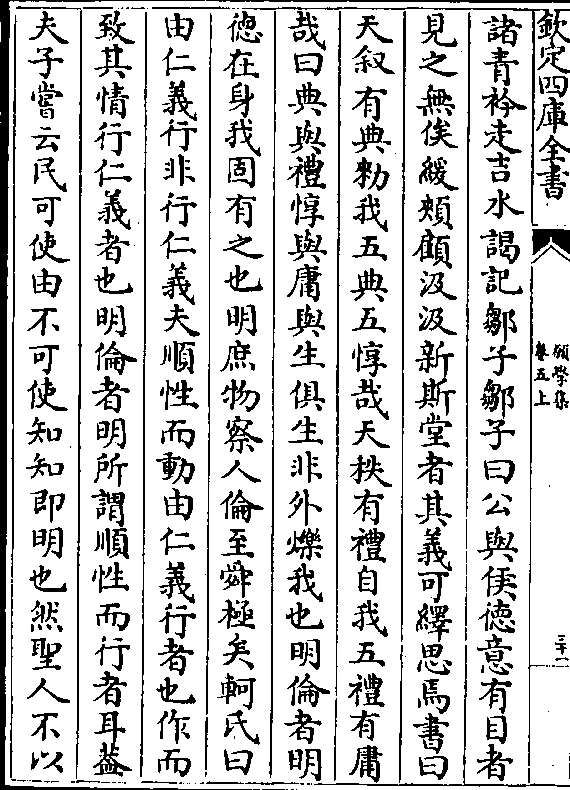 欽定四庫全書
願學集
卷五上
三十一
諸青衿走吉水謁記鄒子鄒子曰公與侯德意有目者
見之無俟緩頰顧汲汲新斯堂者其義可繹思焉書曰
天叙有典勑我五典五惇哉天秩有禮自我五禮有庸
哉曰典與禮惇與庸與生俱生非外爍我也明倫者明
德在身我固有之也明庶物察人倫至舜極矣軻氏曰
由仁義行非行仁義夫順性而動由仁義行者也作而
致其情行仁義者也明倫者明所謂順性而行者耳葢
夫子嘗云民可使由不可使知知即明也然聖人不以